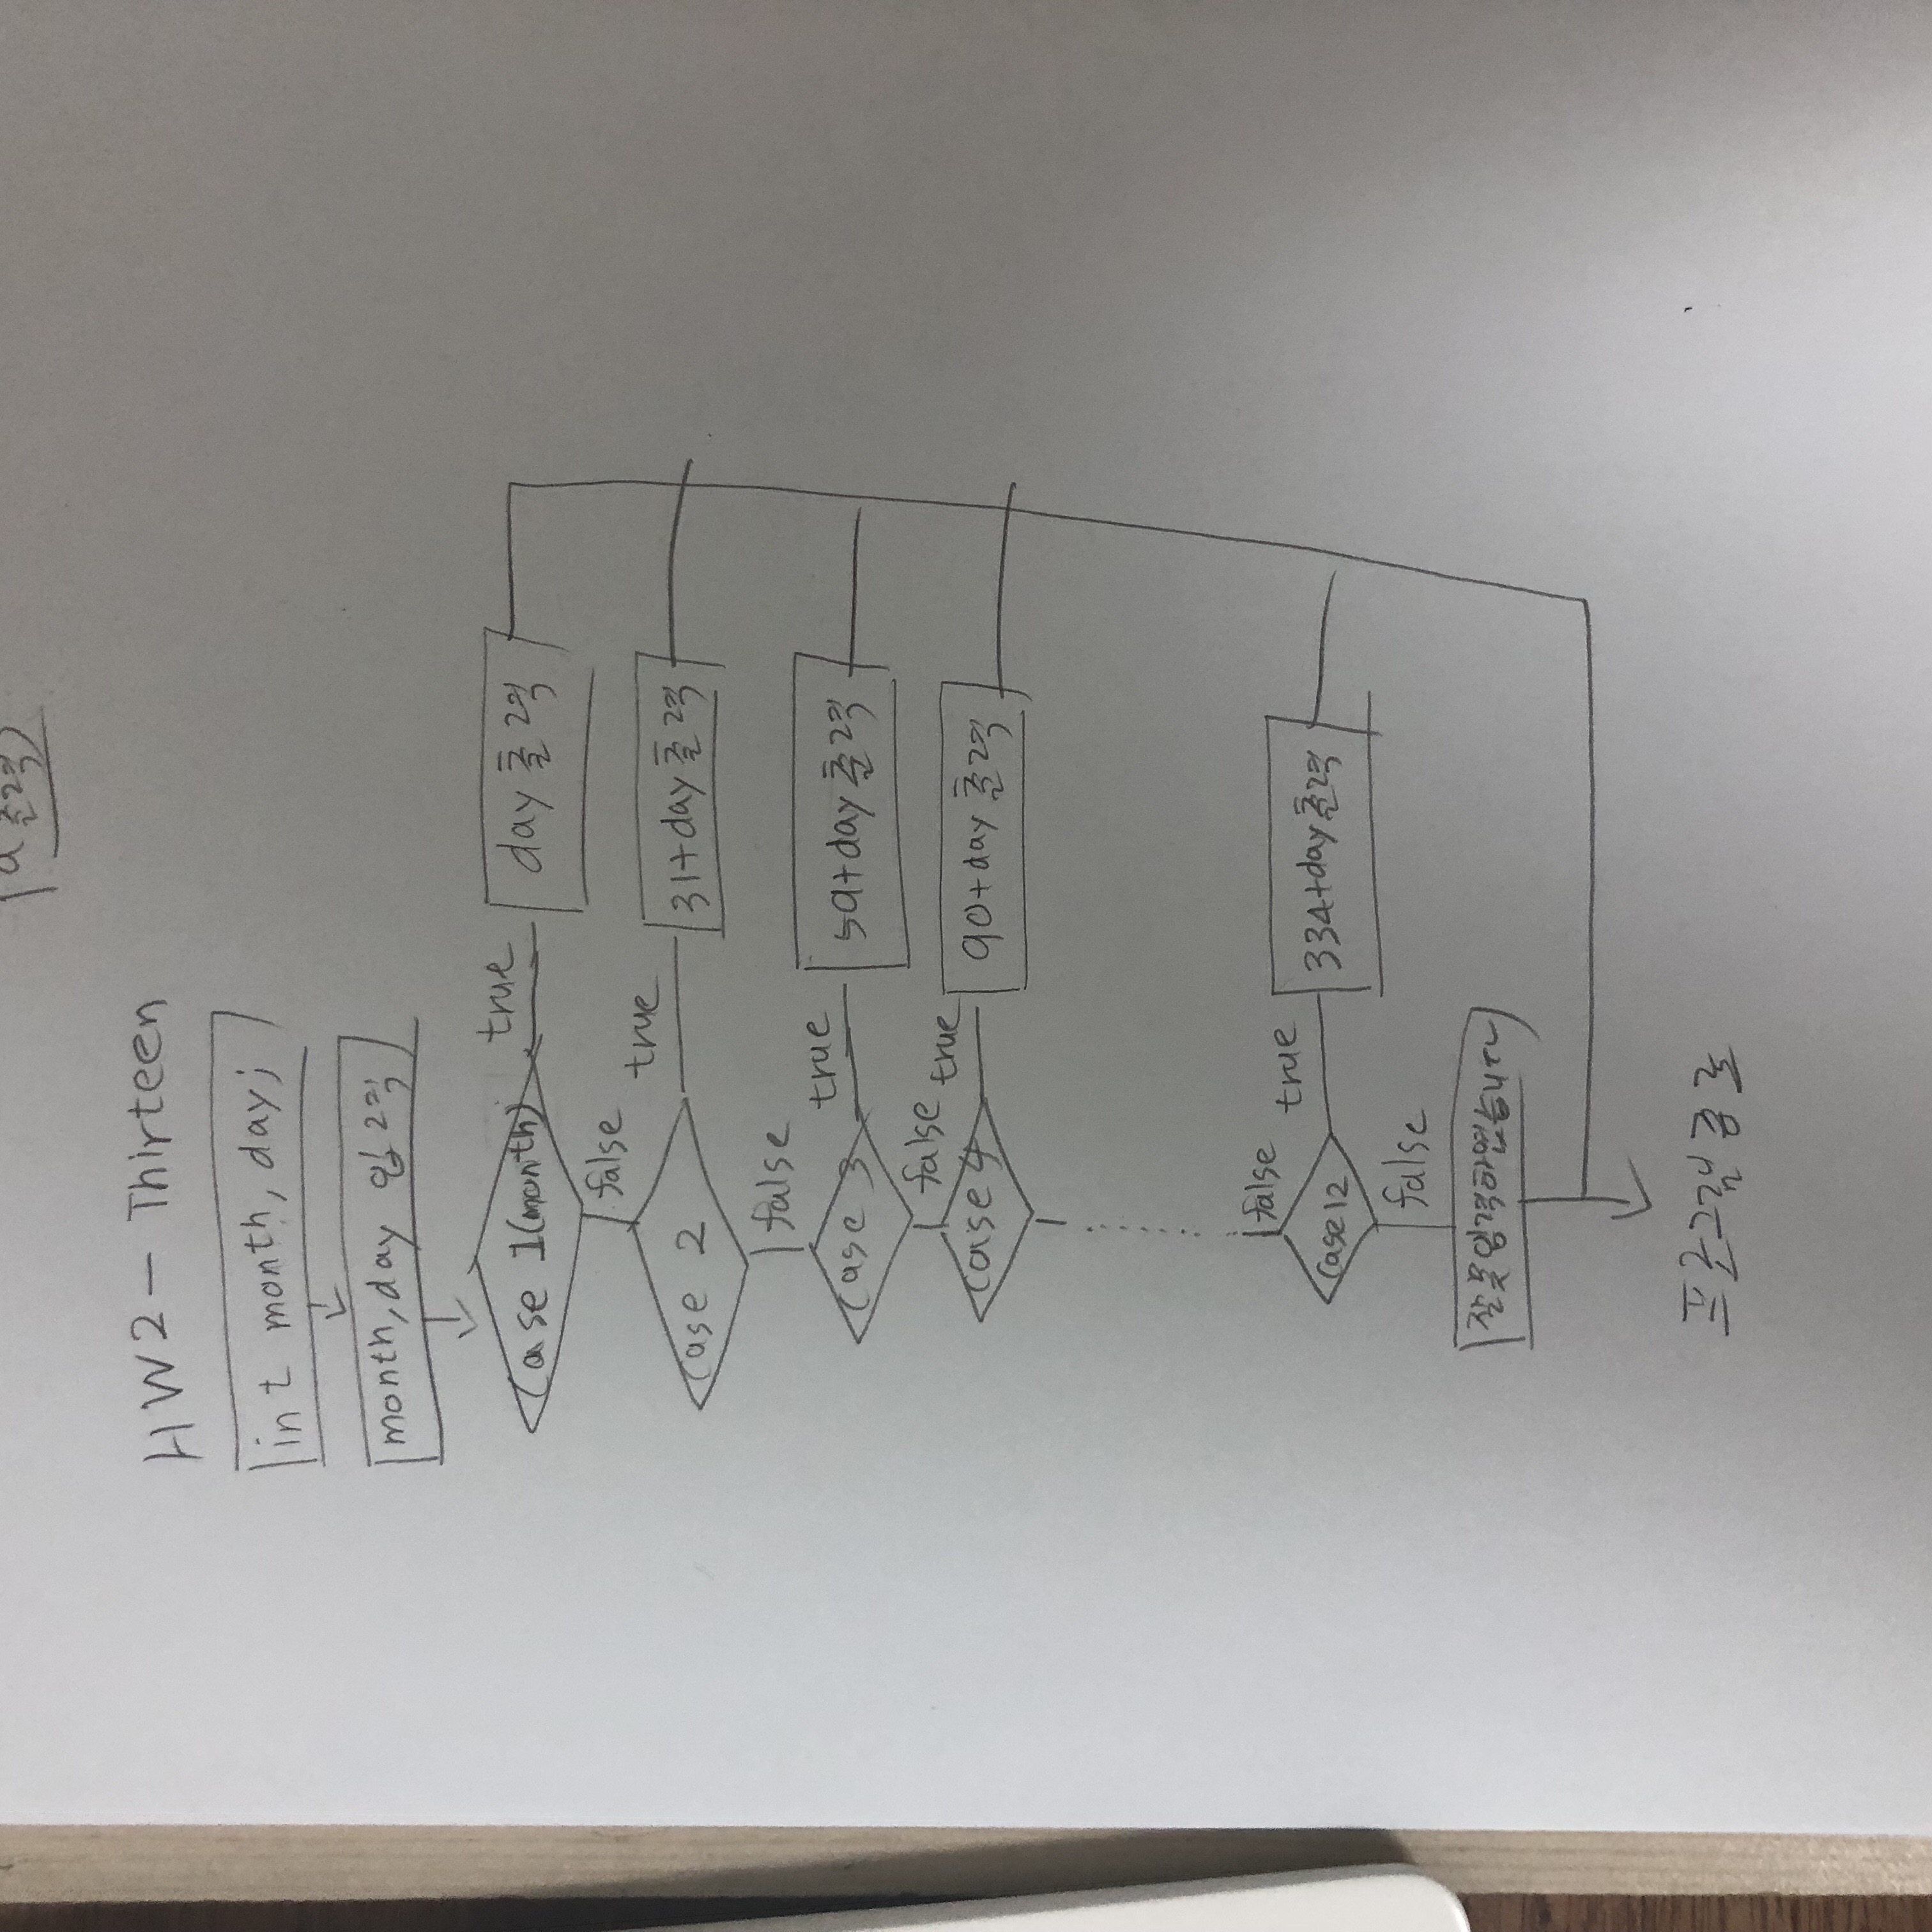 a 출력
HW2 - Thirteen
int month, day;
month, day 입력
case 1(month) true day 출력
false
case 2 true 31+day 출력
false
case 3 true 59+day 출력
false
case 4 true 90+day 출력
false
case 12 true 334+day 출력
false
잘못입력하였습니다
프로그램 종료